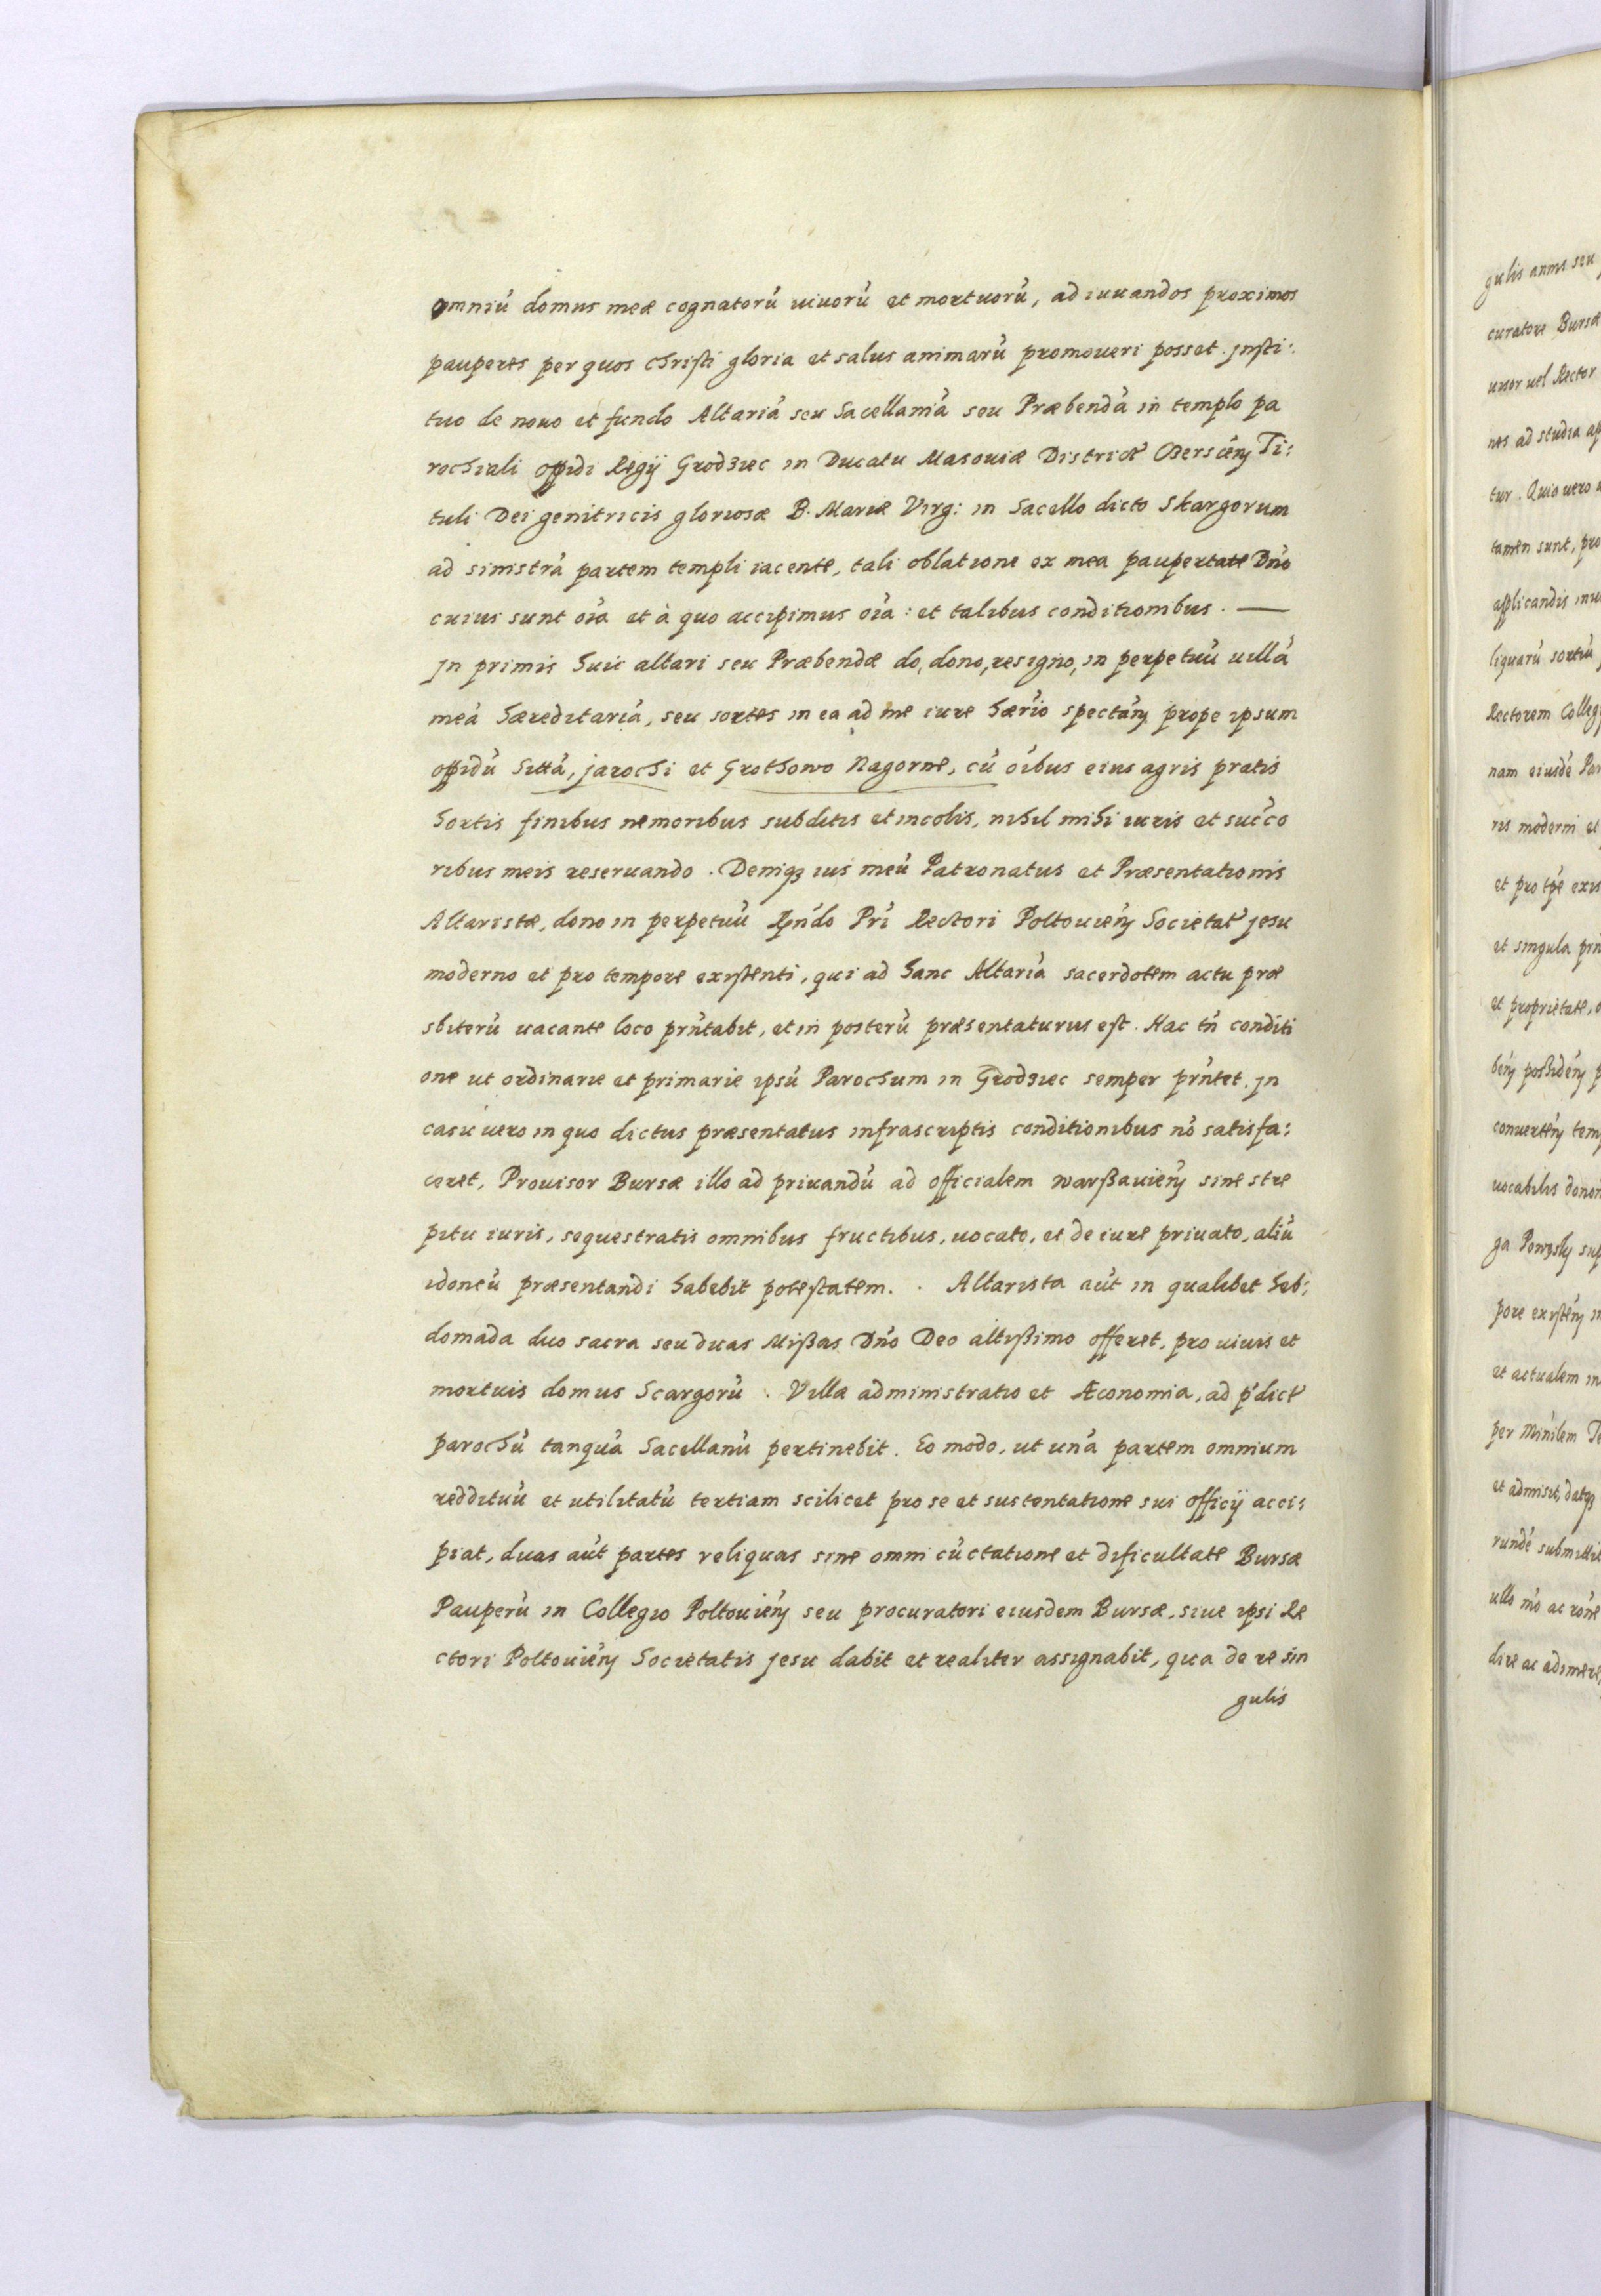 omniú domus meæ cognatorú uiuorú et mortuorú, ad iuuandos proximos
pauperes per quos christi gloria et salus animarú promoueri posset. Insti:
tuo de nouo et fundo Altariá seu Sacellaniá seu Præbendá in templo pa
rochiali oppidi Regij Grodziec in Ducatu Masouiæ District Ti:
tuli Dei genitricis gloriosæ B. Mariæ Virg: in Sacello dicto Skargorum
ad sinistrá partem templi iacente, tali oblatione ex mea paupertate Dńo
cuius sunt oía et à quo accipimus oía: et talibus conditionibus. —
In primis huic altari seu Præbendæ do, dono, resigno, in perpetuú uillá
meá hæreditariá, seu sortes in ea ad me iure hær'io spectań prope ipsum
oppidú sitá, Jarochi et Grothowo Nagorne, cú oíbus eius agris pratis
hortis finibus nemoribus subditis et incolis, nihil mihi iuris et succo
ribus meis reseruando. Deniqз ius meú Patronatus et Præsentationis
Altaristæ, dono in perpetuú Rńdo Pri Rectori Poltouień Societat Jesu
moderno et pro tempore existenti, qui ad hanc Altariá sacerdotem actu præ
sbiterú uacante loco prńtabit, et in posterú præsentaturus est. Hac tń conditi
one ut ordinarie et primarie ipsú Parochum in Grodziec semper prńtet. In
casu uero in quo dictus præsentatus infrascriptis conditionibus nó satisfa:
ceret, Prouisor Bursæ illo ad priuandú ad officialem warßauień sine stre
pitu iuris, sequestratis omnibus fructibus, uocato, et de iure priuato, aliú
idoneú præsentandi habebit potestatem. . Altarista aút in qualibet heb:
domada duo sacra seu duas Mißas Dńo Deo altißimo offeret, pro uiuis et
mortuis domus Scargorú. Villæ administratio et Æconomia, ad p'dict
parochú tanquá Sacellanú pertinebit. Eo modo, ut uná partem omnium
reddituú et utilitatú tertiam scilicet pro se et sustentatione sui officij acci:
piat, duas aút partes reliquas sine omni cúctatione et dificultate Bursæ
Pauperú in Collegio Poltouień seu procuratori eiusdem Bursæ, siue ipsi Re
ctori Poltouień Societatis Jesu dabit et realiter assignabit, qua de re sin
gulis
gulis annis seu
curatore Bursæ
uel Rector
nes ad studia
tur. Quio uero
tamen sunt, pro
applicandis
liquarú sortiú
Rectorem Colleg
nam eiusdé
ris moderni et
et pro tp'e
et singula
et proprietate,
beń poßideń
conuerteń
uocabilis
ga Powęsky
pore existeń
et actualem in
per
et admisit, datqз
rundé
ullo mó ac róne
dire ac adimere,